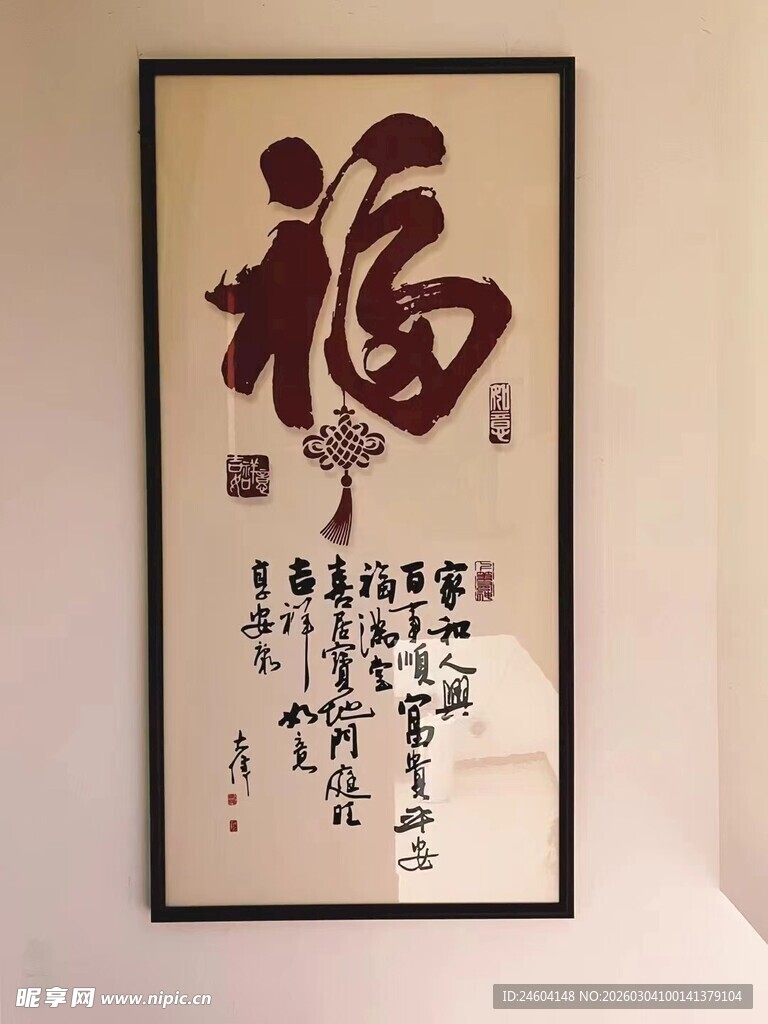 福
如意
吉祥如意
家和人興
百事順富貴平安
福滿堂
喜居寶地門庭旺
吉祥如意
享安康
昵享网 www.nipic.cn
ID:24604148 NO:20260304100141379104